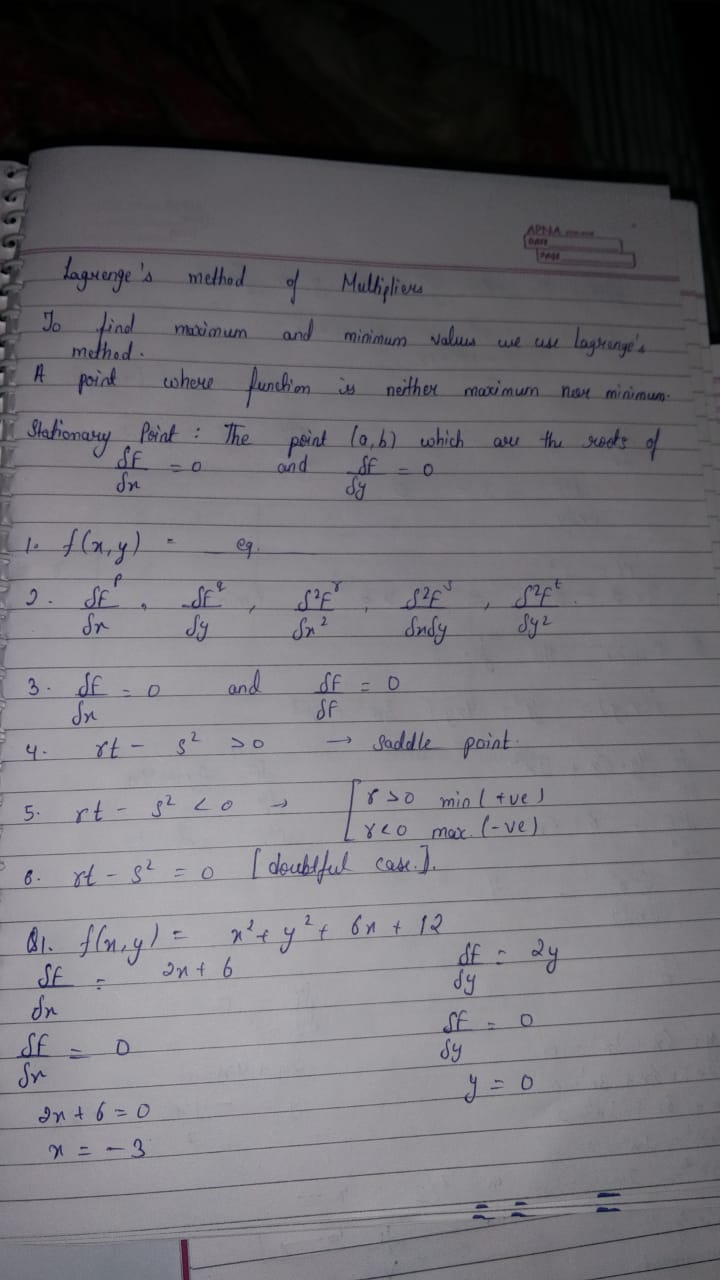 APNA
DATE
PAGE
Lagrenge's method of Multipliers
To find maximum and minimum values we use Lagrenge's
method.
A point where function is neither maximum nor minimum.
Stationary Point : The point (a,b) which are the roots of
δF/δx = 0 and δF/δy = 0
1. f(x,y) = __ eq.
2. δF/δx p, δF/δy q, δ²F/δx² r, δ²F/δxδy s, δ²F/δy² t.
3. δF/δx = 0 and δF/δF = 0
4. rt - s² > 0 → Saddle point.
5. rt - s² < 0 → [r > 0 min (+ve)
r < 0 max. (-ve)
6. rt - s² = 0 [doubtful case.].
Q1. f(x,y) = x² + y² + 6x + 12
δF/δx = 2x + 6
δF/δy = 2y
δF/δx = 0
δF/δy = 0
2x + 6 = 0
y = 0
x = - 3